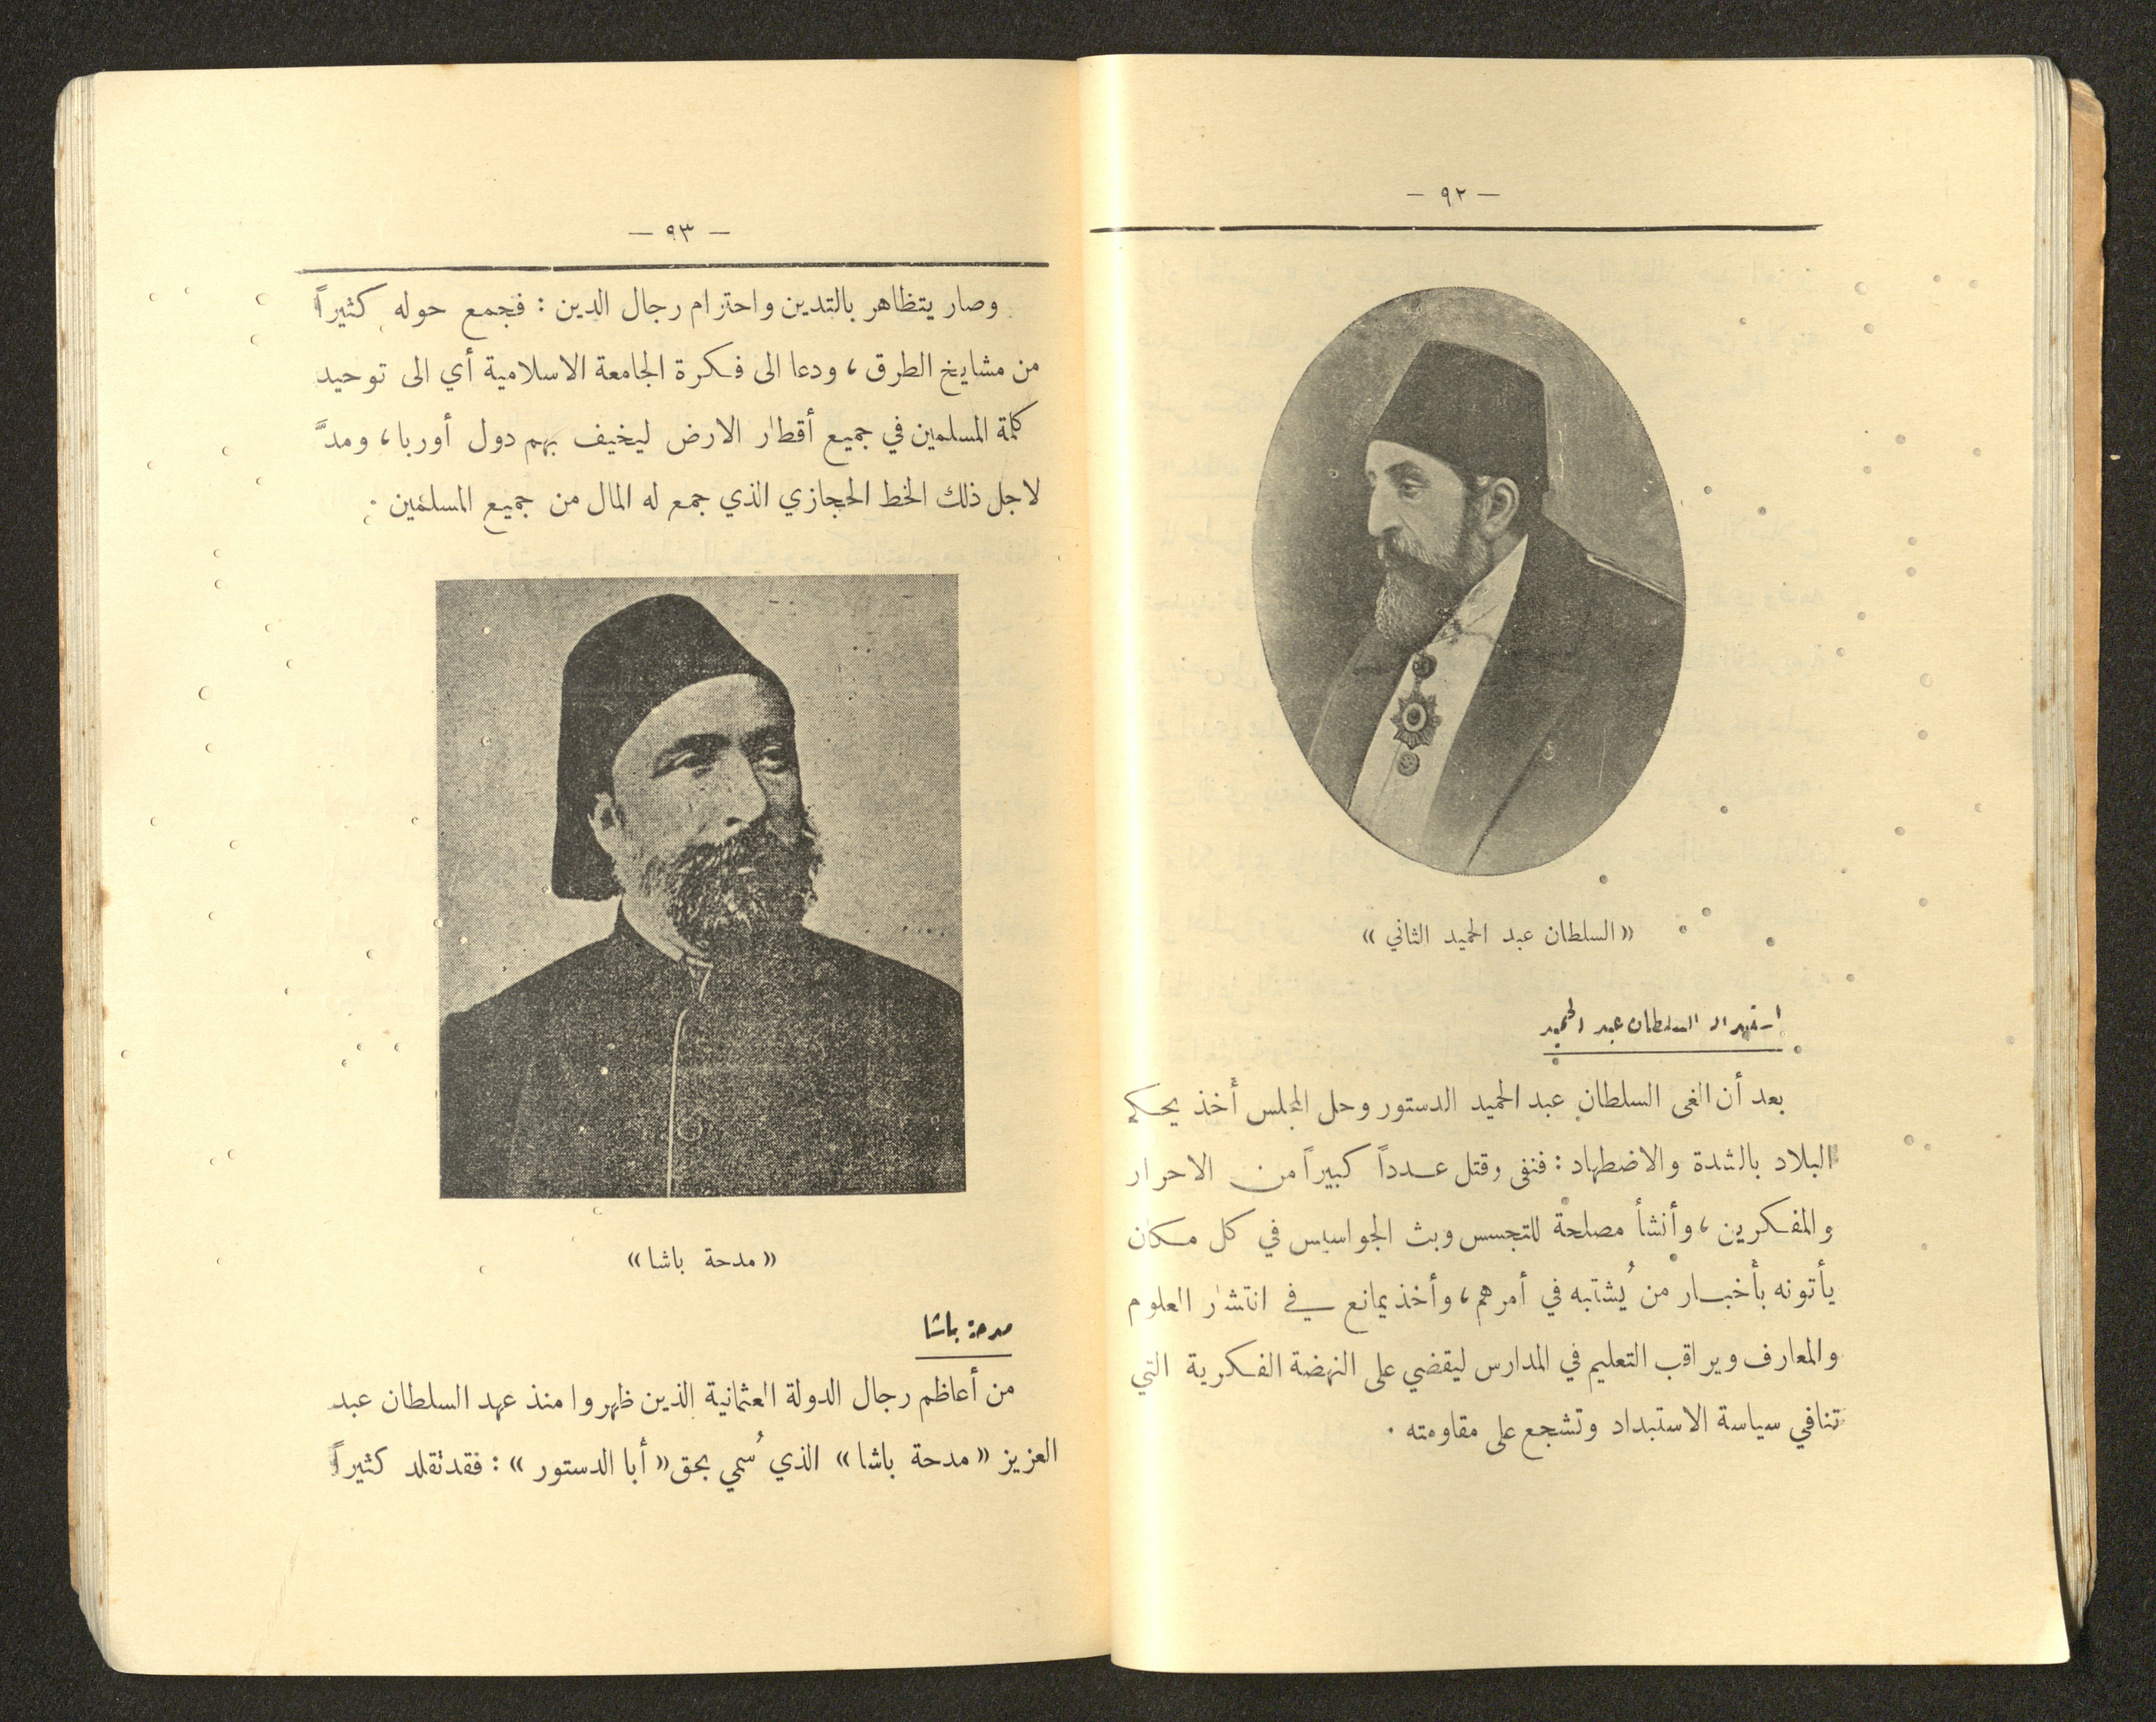 — ٩٢ —
«السلطان عبد الحميد الثاني»
استبداد السلطان عبد الحميد
بعد أن الغى السلطان عبد الحميد الدستور وحل المجلس أخذ يحكم
البلاد بالشدة والاضطهاد : فنفى وقتل عدداً كبيراً من الاحرار
والمفكرين ، وأنشأ مصلحة للتجسس وبث الجواسيس في كل مكان
يأتونه بأخبار من يُشتبه في أمرهم ، وأخذ يمانع في انتشار العلوم
والمعارف ويراقب التعليم في المدارس ليقضي على النهضة الفكرية التي
تنافي سياسة الاستبداد وتشجع على مقاومته .
— ٩٣ —
وصار يتظاهر بالتدين واحترام رجال الدين : فجمع حوله كثيراً
من مشايخ الطرق ، ودعا الى فكرة الجامعة الاسلامية أي الى توحيد
كلمة المسلمين في جميع أقطار الارض ليخيف بهم دول أوربا ، ومدَّ
لاجل ذلك الخط الحجازي الذي جمع له المال من جميع المسلمين .
«مدحة باشا»
مدحة باشا
من أعاظم رجال الدولة العثمانية الذين ظهروا منذ عهد السلطان عبد
العزيز «مدحة باشا» الذي سُمي بحق «أبا الدستور» : فقد تقلد كثيراً